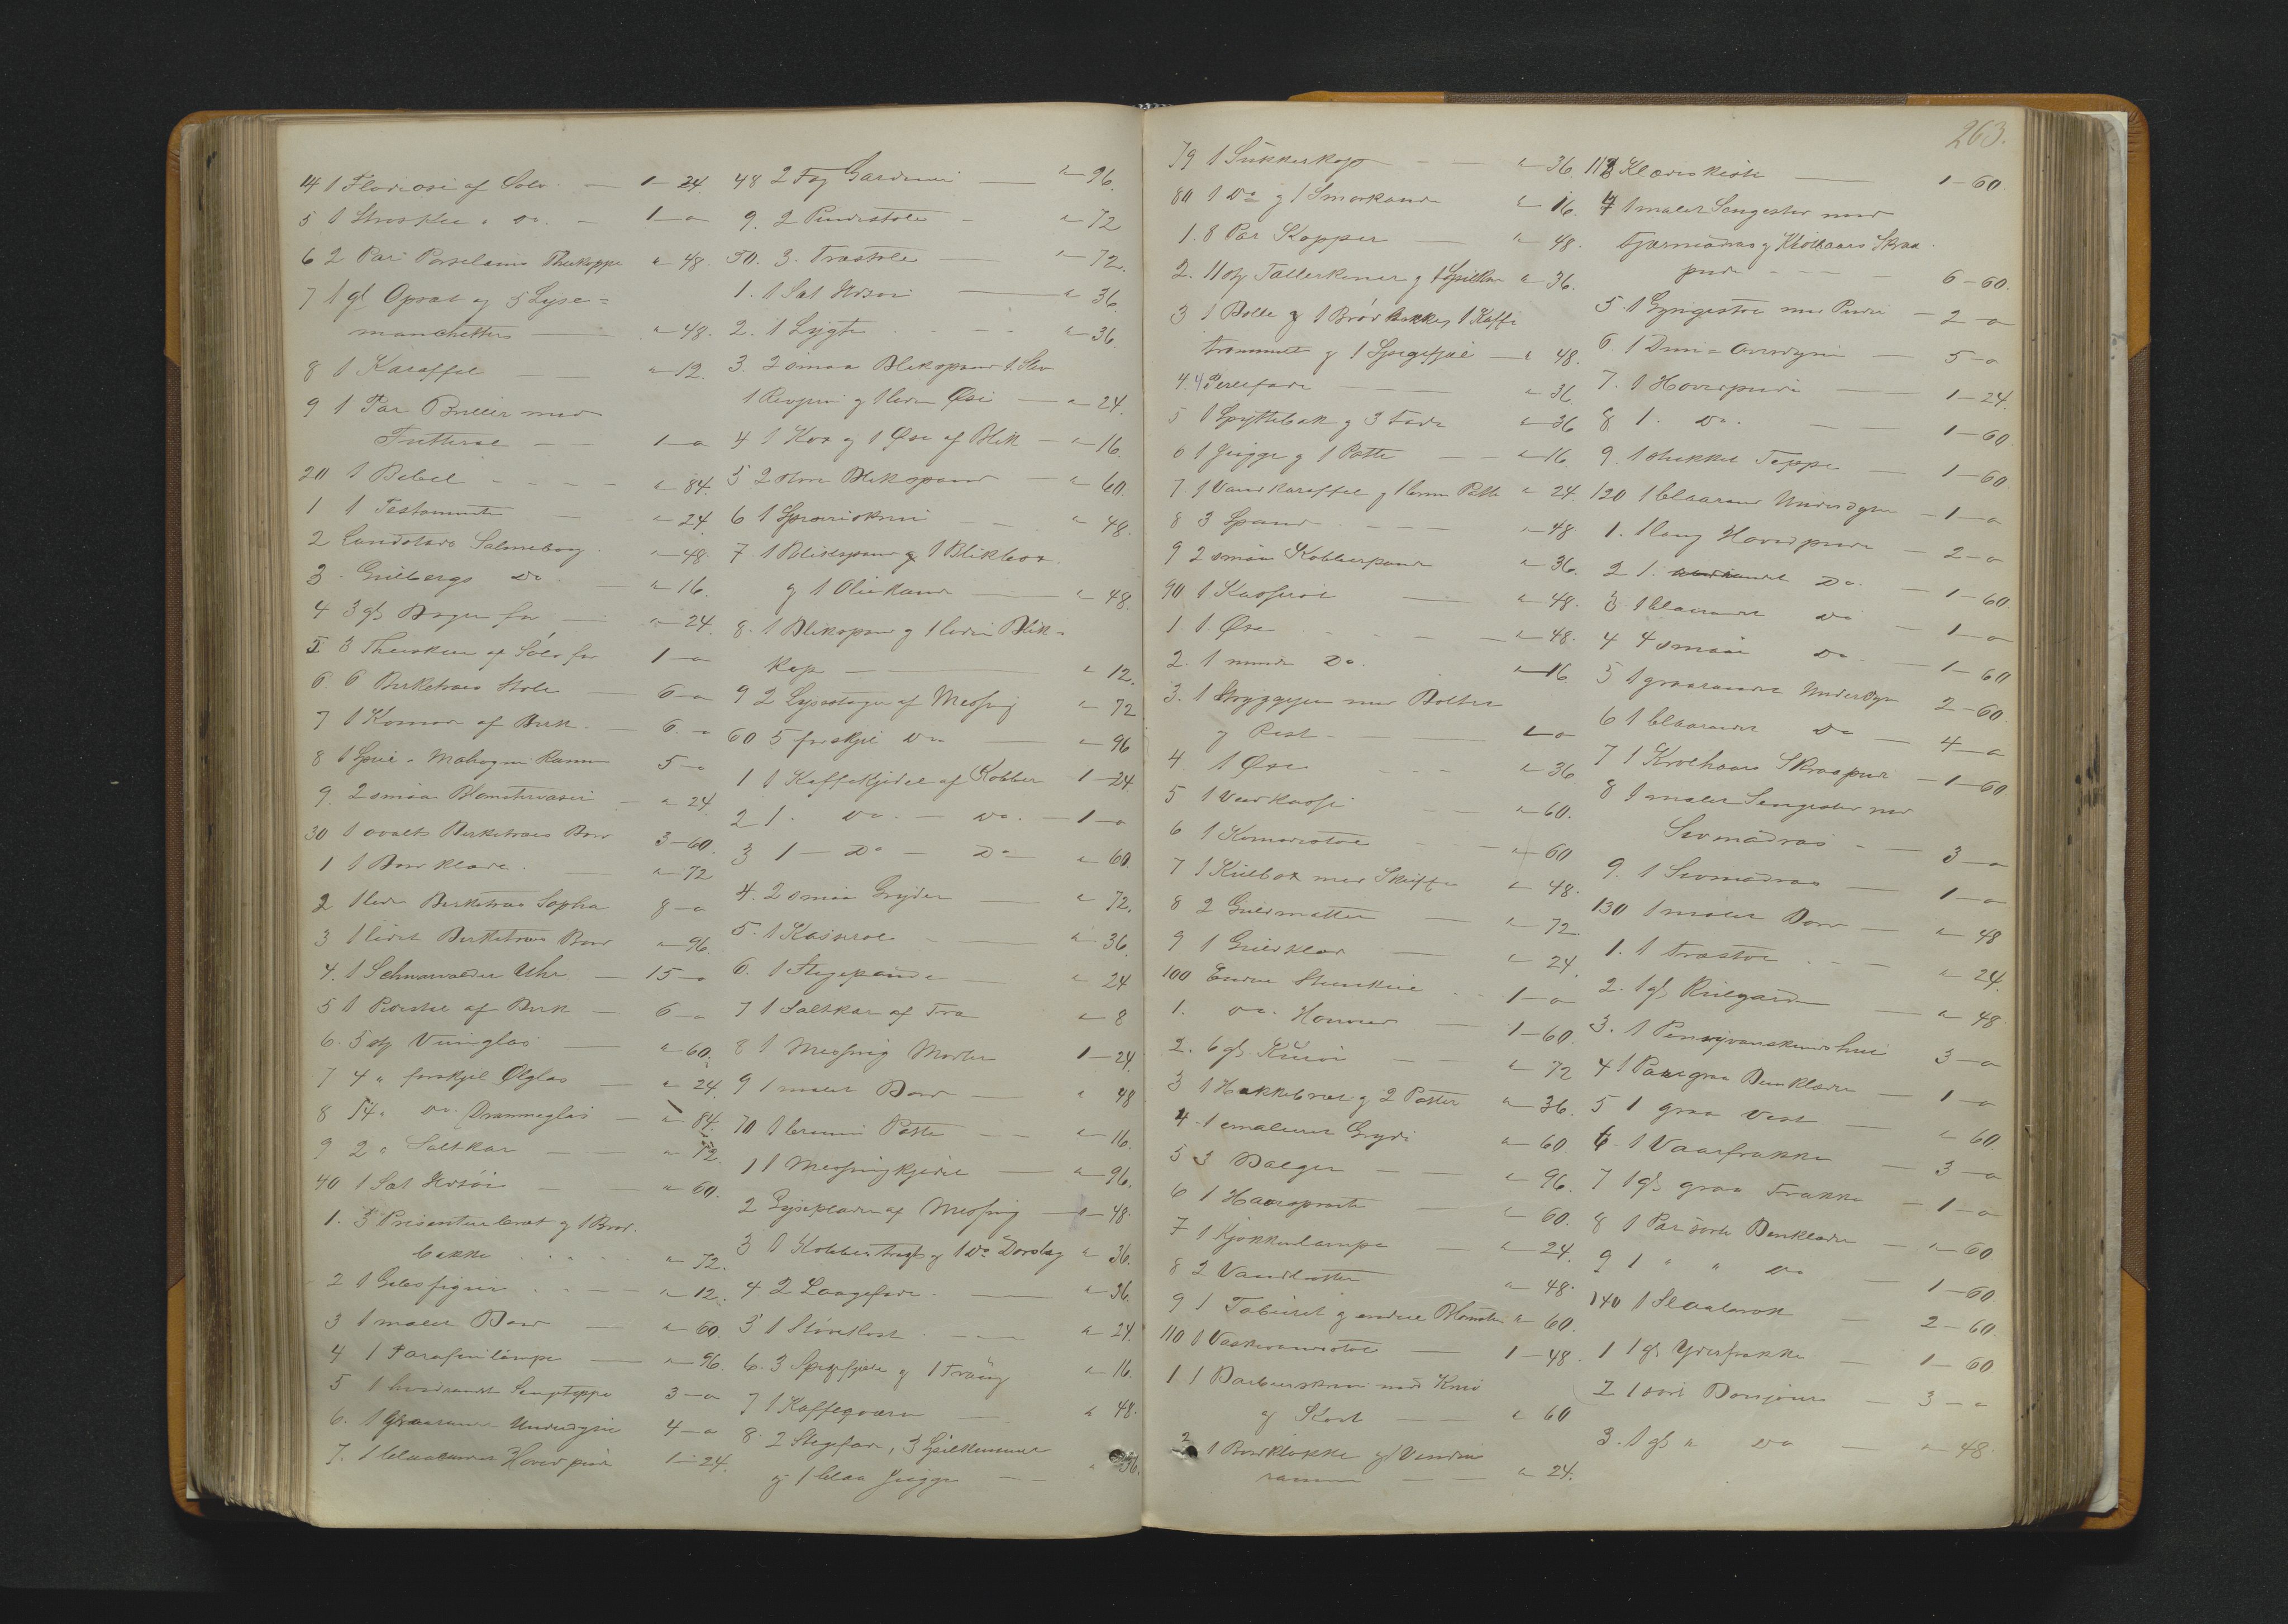 14 1 Flødeose af Sølv — 1-24.
5 1 Strøskee " Do. — 1-"
6 2 Par Porselains Theekoppe "-48.
7 1 gl Opsat og 5 Lyse=
manchetter "-48.
8 1 Karaffel — "-12.
9 1 Par Briller med
Futteral — 1-"
20 1 Bibel — "-84.
1 1 Testamente "-24.
2 Landstads Salmebog "-48.
3 Guldbergs Do "-16.
4 3 gl Bøger for — "-24.
5 3 Theeskeer af Sølv for 1-"
6. 6 Birketræes Stole — 6-"
7 1 Komode af Birk — 6-"
8 1 Speil " Mahogni Ramme 5-"
9. 2 smaa Blomstervaser — "-24
30 1 ovalt Birketræes Bord 3-60.
1 1 Bordklæde "-72
2 1 liden Birketræes Sopha 8-"
3 1 lidet Birketræes Bord "-96.
4. 1 Schwarvalder Uhr — 15-"
5 1 Pidestal af Birk — 6-"
6. 5 stk Viinglas — "-60.
7 4 " forskjel Ølglas — "-24.
8 14 " Do. Drammeglas — "-84.
9 2 " Saltkar — "-12.
40 1 Sæt Hosøi — "-60.
1. 3 Presenteerbræt og 1 Brød-
bakke "-72.
2 1 Gibsfigur "-12.
3 1 malet Bord — "-60.
4 1 Parafinlampe — "-96.
5 1 hvidrandet Sengteppe 3-"
6. 1 graarandet Underdyne 4-"
7. 1 blaarandet Hovedpude 1-24.
48 2 Fag Gardiner — "-96.
9. 2 Pindestole — "-72
50. 3. Træstole — "-72.
1. 1 Sæt — "-36
2. 1 Lygte "-36.
3. 2 smaa Blikspand 1
1 Revjern og 1 liden Øse — "-24.
4 1 og 1 Øse af Blik — "-16.
5 2 store Blikspand — "-60.
6 1 — "-48.
7. 1 Blikspand og 1 Blikbox
og 1 Oliekande — "-48.
8. 1 Blikspan og 1 liden Blik-
kop — "-12.
9 2 Lysestager af Messing "-72
60 5 forskjel Do — "-96
1 1 Kaffekjedel af Kobber 1-24
2 1. Do. — Do. — 1-"
3 1 — Do — Do — "-60.
4. 2 smaa Gryder "-72.
5. 1 Kaserol — "-36.
6. 1 Stegepande — "-24
7 1 Saltkar af Træ "-8
8 1 Messing Morter 1-24.
9 1 malet Bord — "-48
70 1 bruun Potte — "-16.
1 1 Messingkjedel — "-96.
2 Lyseplader af Messing "-48.
3 1 Kobbertragt og 1 Do Dørslag "-36.
4 2 Laagefade — "-36.
5 1 Støvekost "-24.
6. 3 Spegefjæle og 1 Traug "-16.
7 1 Kaffeqværn "-48.
8. 2 Stegefade, 3
og 1 blaa Jugge — "-36.
263.
79 1 Sukkerkop — "-36
80 1 Do og 1 Smørkande "-16.
1. 8 Par Kopper — "-48.
2. 11 stk Tallerkener og 1 "-36.
3 1 Bolle og 1 Brødbakke, 1 Kaffe
trommel og 1 Spegefjæl — "-48.
4. "-36.
5 1 Spyttebak og 3 Fade "-36
6 1 Jugge og 1 Potte — "-16
7. 1 Vandkaraffel og 1 bruun Potte "-24.
8 3 Spand — "-48
9 2 smaa Kobberpander "-36.
90 1 Kasserol — "-48.
1 1. Øse — "-48.
2. 1 mindre Do. "-16
3. 1 Strygejern med Bolter
og Rist — 1-"
4. 1 Øxe "-36
5 1 "-60.
6 1 Komodestol — "-60
7 1 Kulbox med Skuffe "-48.
8 2 Gulvmatter — "-72.
9 1 Gulvklæde — "-24.
100 Endeel Steenkul 1-"
1. Do. — 1-60.
2. 6 gl — "-72
3 1 Hakkebræt og 2 Potter "-36.
4 1 emaleret Gryde "-60.
5 3 Balger — "-96.
6 1 — "-60.
7 1 Kjøkkenlampe "-24.
8 2 Vandbøtter "-48.
9 1 Taburet og endeel Blomster "-60.
110 1 Vaskevandsstol — 1-48.
1 1 Barbeerskrin med Kniv
og Kost — "-60
2 1 Bordklokke og 1
ramme — "-24.
113 Klædeskiste — 1-60.
4 1 malet Sengested med
og Krølhaars Skraa-
pude — 6-60.
5. 1 Gyngestol med Puder — 2-"
6. 1 Duun=Overdyne 5-"
7. 1 Hovedpude — 1-24.
8 1. Do. — 1-60.
9. 1 stukket Teppe — 1-60
120 1 blaarand Underdyne — 1-"
1. 1 lang Hovedpude — 2-"
2 1. Do. — 1-60.
3 1 blaarandet Do — 1-"
4 4 smaa Do. — 1-60
5 1 graarandet Underdyn 2-60.
6 1 blaarandet Do — 4-"
7 1 Krølhaars Skraapude — 1-60
8 1 malet Sengested med
Sivmadras — 3-"
9. 1 Sivmadras — 1-"
130 1 malet Bord — "-48
1. 1 Træstol "-24.
2. 1 gl Rulgardin — "-48.
3. 1 3-"
4 1 Par graa Benklæder — 1-"
5 1 graa Vest — "-60.
6. 1 Vaarfrakke — 3-"
7 1 gl graa Frakke — 1-"
8 1 Par sorte Benklæder — "-60.
9 1 " " Do — 1-60.
140 1 Slaabrok — 2-60.
1 1 gl Yderfrakke — 1-60
2 1 sort Bonjour — 3-"
3. 1 gl " Do — "-48.